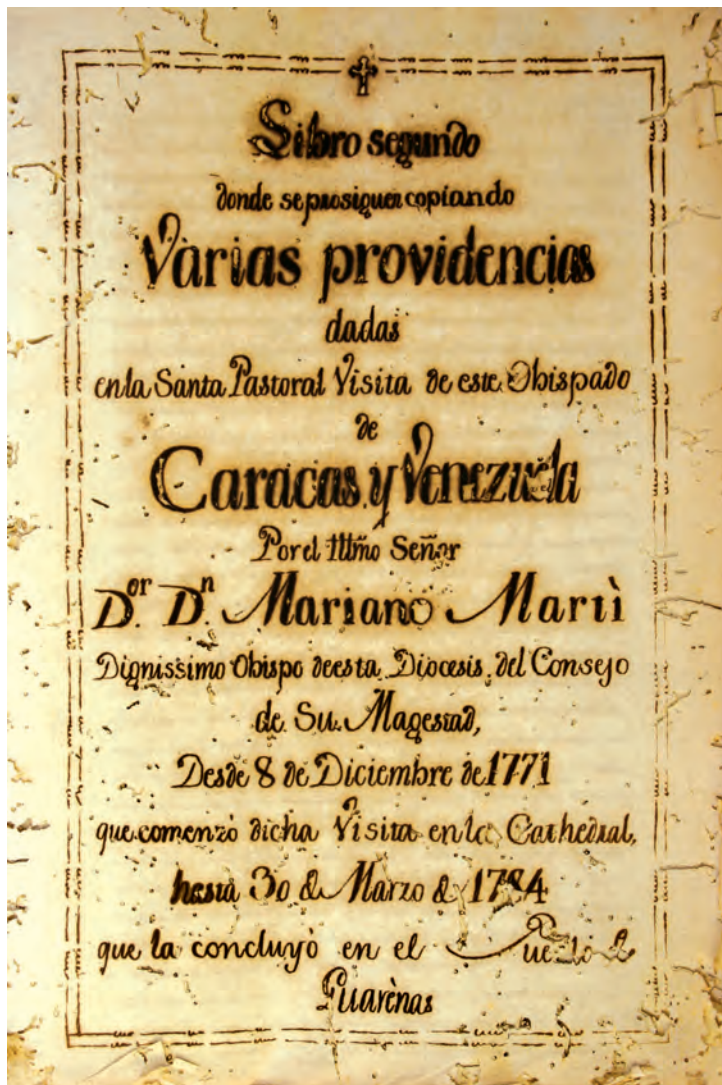 Libro segundo
donde se prosiguen copiando
Varias providencias
dadas
en la Santa Pastoral Visita de este Obispado
de
Caracas y Venezuela
Por el Illmo Señor
D.or D.n Mariano Martì
Dignissimo Obispo de esta Diocesis, del Consejo
de Su Magestad,
Desde 8 de Diciembre de 1771
que comenzò dicha Visita en la Cathedral,
hasta 30 de Marzo de 1784
que la concluyò en el Pueblo de
Guarènas